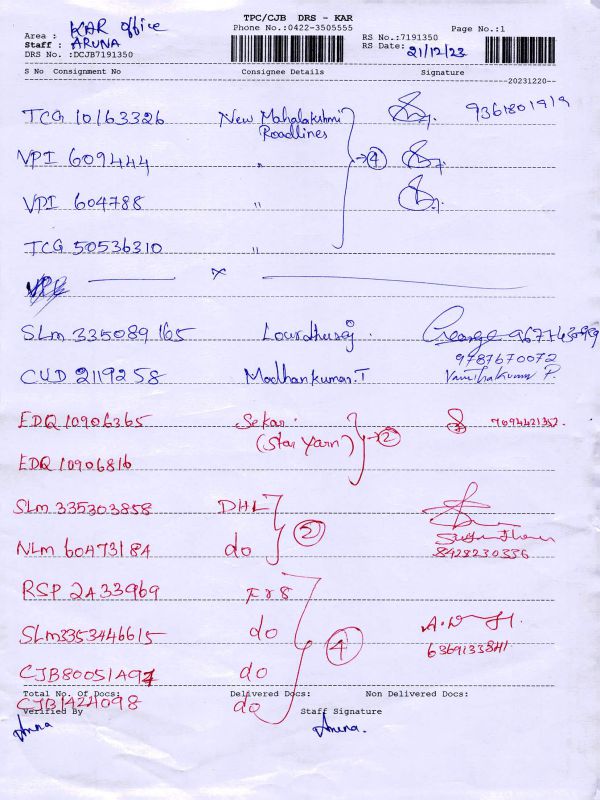 TPC/CJB DRS - KAR
Area : KAR office
Phone No.:0422-3505555
Page No.:1
Staff : ARUNA
RS No.:7191350
DRS No. :DCJB7191350
RS Date: 21/12/23
S No Consignment No. Consignee Details Signature
20231220
TCG 10163326 New Mahalakshmi 9361801919
Roadlines
VPI 609444 " → 4
VPI 604788 "
TCG 50536310 "
x
SLM 335089165 Lourdhuraj. George 9677430989
9787670072
CUD 2119258 Madhankumar.T Vanithakumar P.
EDQ 10906365 Sekar. 7094421352.
(Star Yarn) → 2
EDQ 10906816
SLM 335303858 DHL
NLM 60473184 do 2
8428230336
RSP 2A33969 F&8
SLM3353446615 do 4
6369133841
CJB80051A97 do
Total No. Of Docs: Delivered Docs: Non Delivered Docs:
CJB1424098 do
Verified By Staff Signature
Aruna Aruna.